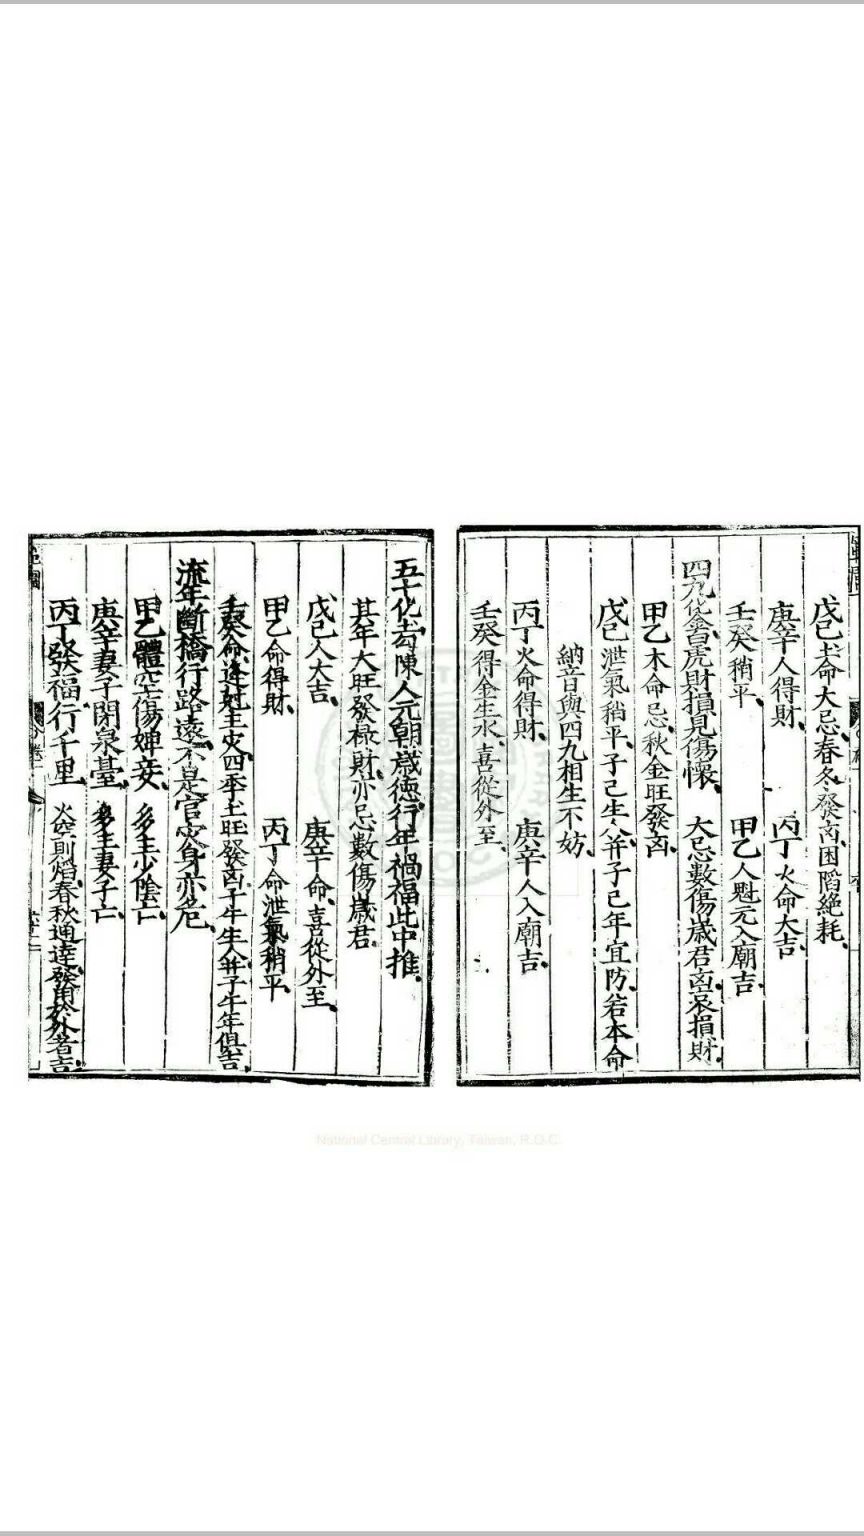 戊己土命大忌春冬發高困陷絕耗
庚辛人得財　丙丁火命大吉
壬癸稍平　甲乙人魁元入廟吉
四九化金白虎財損見傷懷　大忌數傷歲君凶哀損財
甲乙木命忌秋金旺發凶
戊己泄氣稍平子己生人并子己年宜防若本命
納音與四九相生不妨
丙丁火命得財　庚辛人入廟吉
壬癸得金生水喜從外至
五十化土勾陳人元朝歲德行年禍福此中推
其年大旺發祿財亦忌數傷歲君
戊己人大吉　庚辛命喜從外至
甲乙命得財　丙丁命泄氣稍平
壬癸命逢尅主灾四季土旺發凶子午生人并子午年俱吉
流年斷橋行路遠不是官灾身亦危
甲乙體空傷婢妾　多主少陰亡
庚辛妻子閉泉臺　多主妻子亡
丙丁發福行千里　火空則焰春秋通達發用於外者吉
National Central Library, Taiwan, R.O.C.